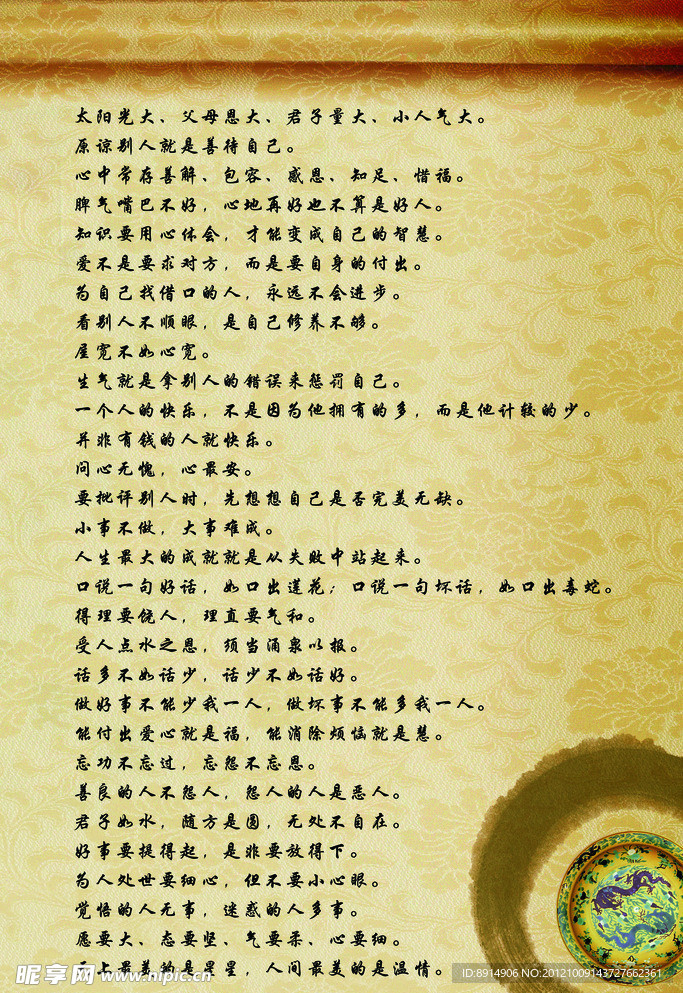 太阳光大、父母恩大、君子量大、小人气大。
原谅别人就是善待自己。
心中常存善解、包容、感恩、知足、惜福。
脾气嘴巴不好，心地再好也不算是好人。
知识要用心体会，才能变成自己的智慧。
爱不是要求对方，而是要自身的付出。
为自己找借口的人，永远不会进步。
看别人不顺眼，是自己修养不够。
屋宽不如心宽。
生气就是拿别人的错误来惩罚自己。
一个人的快乐，不是因为他拥有的多，而是他计较的少。
并非有钱的人就快乐。
问心无愧，心最安。
要批评别人时，先想想自己是否完美无缺。
小事不做，大事难成。
人生最大的成就就是从失败中站起来。
口说一句好话，如口出莲花；口说一句坏话，如口出毒蛇。
得理要饶人，理直要气和。
受人点水之恩，须当涌泉以报。
话多不如话少，话少不如话好。
做好事不能少我一人，做坏事不能多我一人。
能付出爱心就是福，能消除烦恼就是慧。
忘功不忘过，忘怨不忘恩。
善良的人不怨人，怨人的人是恶人。
君子如水，随方是圆，无处不自在。
好事要提得起，是非要放得下。
为人处世要细心，但不要小心眼。
觉悟的人无事，迷惑的人多事。
愿要大、态要坚、气要柔、心要细。
上最美的是星星，人间最美的是温情。
昵享网 www.nipic.cn
ID:8914906 NO:20121009143727662361